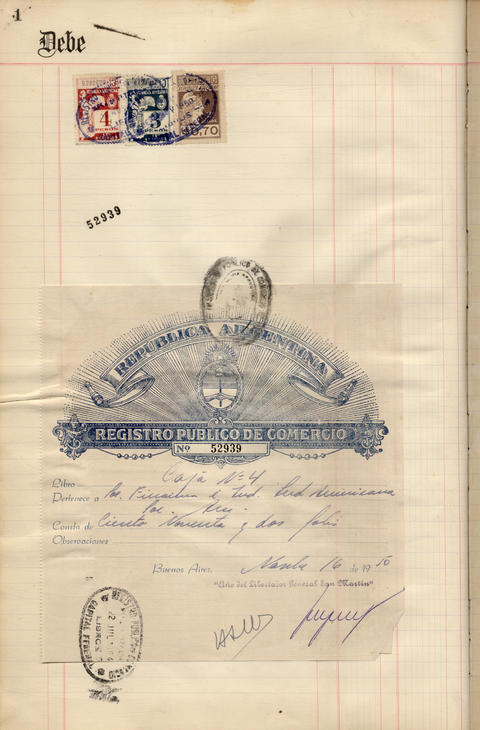 1
Debe
4
PESOS
3
PESOS
0,70
52939
REPUBLICA ARGENTINA
REGISTRO PUBLICO DE COMERCIO
Nº 52939
Libro Caja Nº 4
Pertenece a Financiera e Ind. Sud Americana
Consta de Ciento Noventa y dos folios
Observaciones
Buenos Aires, 16 de 1950
"Año del Libertador General San Martín"
REGISTRO PUBLICO DE COMERCIO
LIBROS
CAPITAL FEDERAL